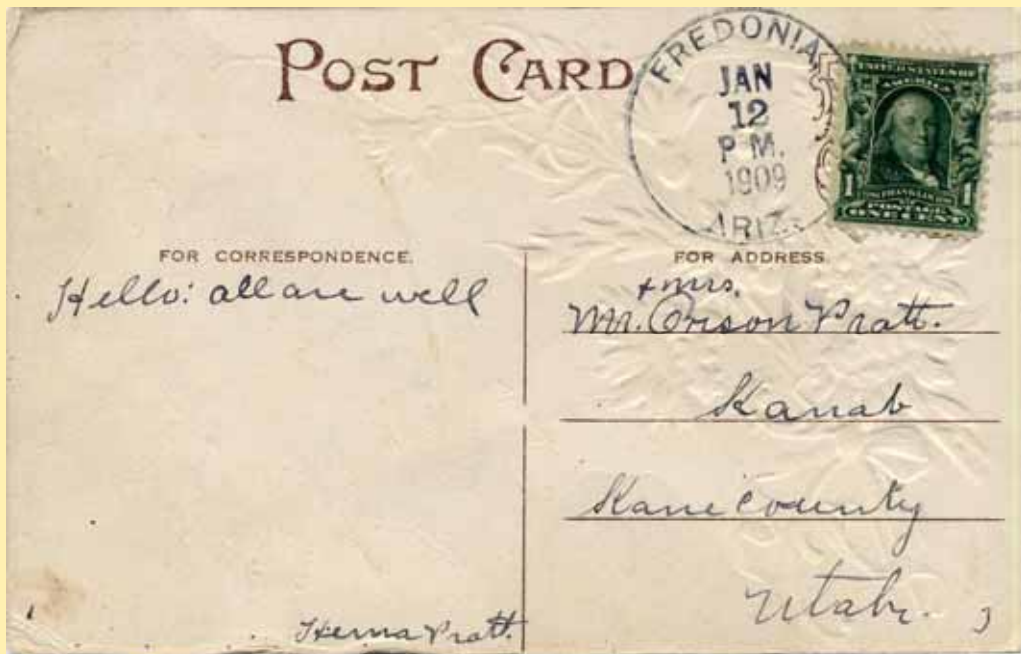 POST CARD
FREDONIA
JAN
12
P M.
1909
ARIZ.
UNITED STATES OF
AMERICA
1 1
POSTAGE
ONE CENT
FOR CORRESPONDENCE.
Hello: all are well
Pratt.
FOR ADDRESS.
+ Mrs.
Mr. Orson Pratt.
Kanab
Kane County
Utah.